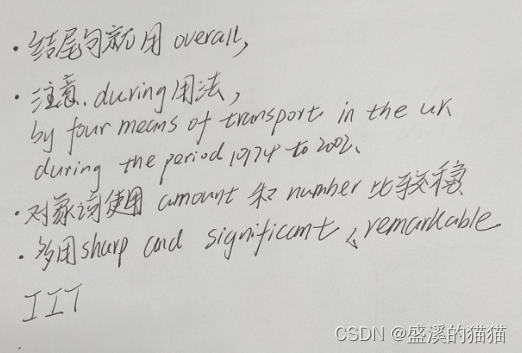 · 结尾句就用 overall,
· 注意. during 用法,
by four means of transport in the uk
during the period 1974 to 2002.
· 对象词使用 amount 和 number 比较稳
· 多用 sharp and significant、remarkable
IIT
CSDN @盛溪的猫猫